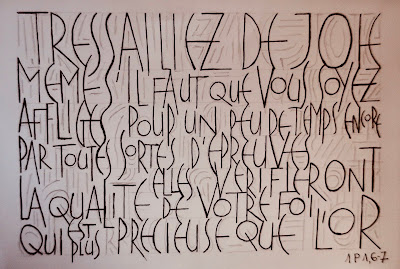 TRESSAILLEZ DE JOIE
MEME S'IL FAUT QUE VOUS SOYEZ
AFFLIGES POUR UN PEU DE TEMPS ENCORE
PAR TOUTES SORTES D'EPREUVES
ELLES VERIFIERONT
LA QUALITE DE VOTRE FOI
QUI EST PLUS PRECIEUSE QUE L'OR
1 P 1, 6-7